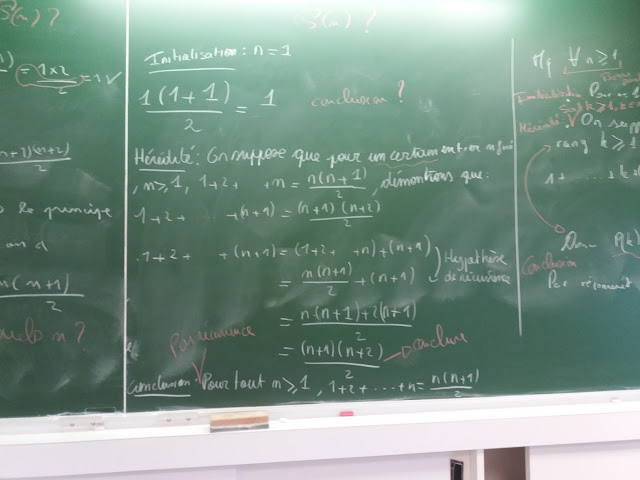 P(n) ?
= 1×2/2 = 1 ✓
(n+1)(n+2)/2
le principe
on a
n(n+1)/2
quels n ?
(P(n)) ?
Initialisation : n = 1
1(1+1)/2 = 1 conclusion ?
Hérédité : On suppose que pour un certain entier n fixé
, n ≥ 1, 1+2+ +n = n(n+1)/2, démontrons que :
1+2+ +(n+1) = (n+1)(n+2)/2
1+2+ +(n+1) = (1+2+ +n)+(n+1)
= n(n+1)/2 + (n+1) Hypothèse de récurrence
= n(n+1)+2(n+1)/2
= (n+1)(n+2)/2 → conclure
Par récurrence
Conclusion : Pour tout n ≥ 1, 1+2+ ... +n = n(n+1)/2
Mq ∀ n ≥ 1,
Initialisation Pour n = 1
Soit k ≥ 1,
Hérédité : On supp
rang k ≥ 1
1+ ... +k
Donc P(k)
Conclusion
Par récurrence